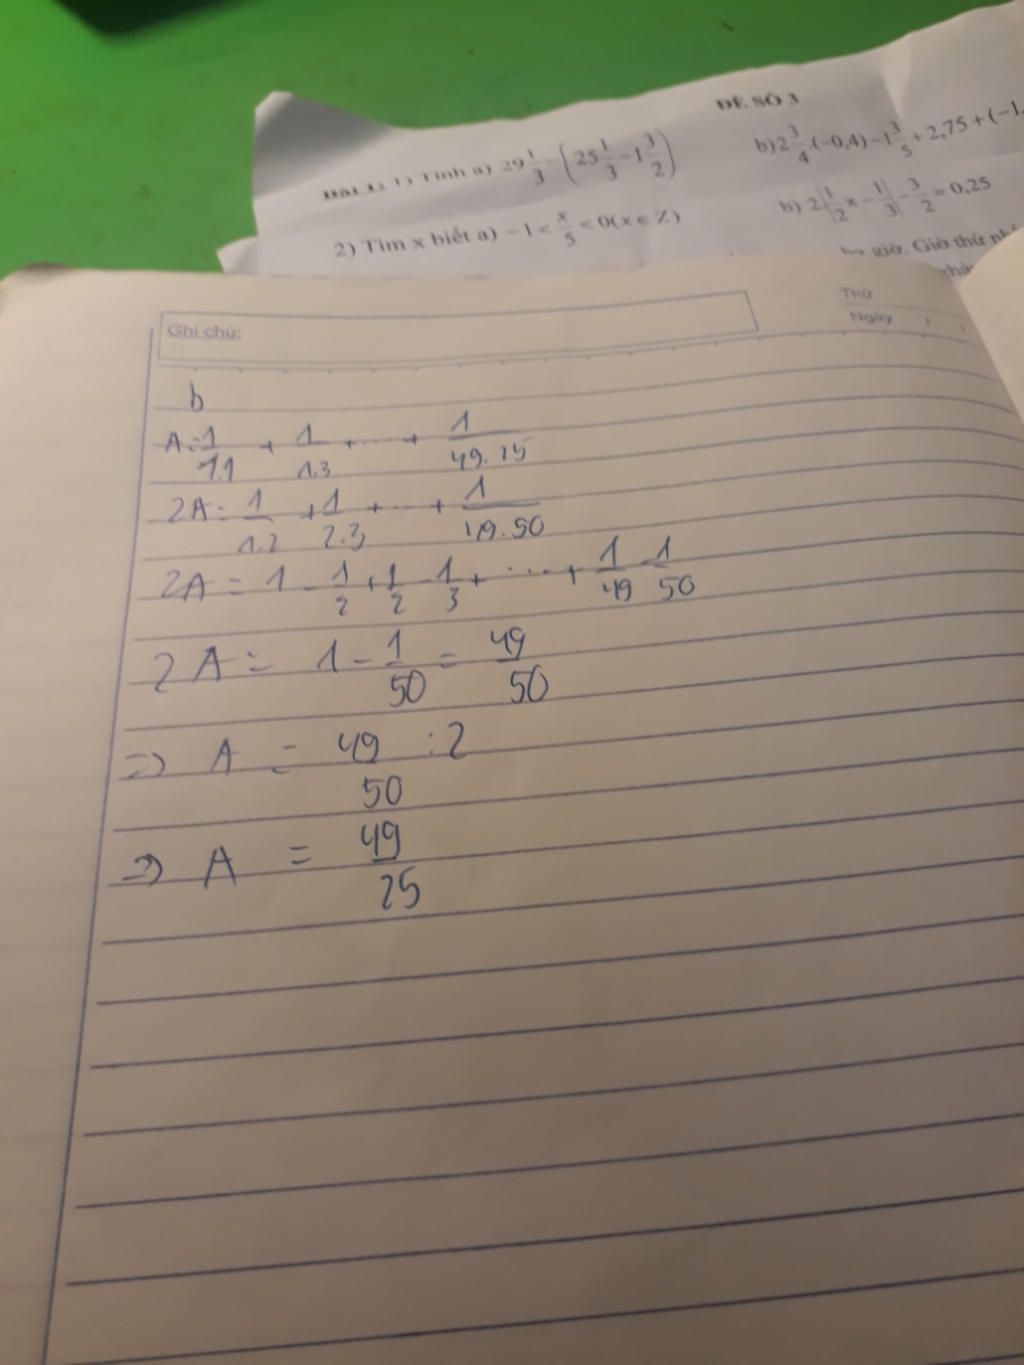 ĐỀ SỐ 3
Bài 1: 1) Tính a) 29 1/3 − (25 1/3 − 1 3/2) b) 2 3/4 .(−0,4) − 1 3/5 + 2,75 + (−1,
2) Tìm x biết a) −1 < x/5 < 0 (x ∈ Z) b) 2|1/2 x − 1/3| − 3/2 = 0,25
giờ. Giờ thứ
Ghi chú:
Thứ
Ngày
b
A = 1/1.1 + 1/1.3 + ... + 1/49.25
2A = 1/1.2 + 1/2.3 + ... + 1/49.50
2A = 1 − 1/2 + 1/2 − 1/3 + ... + 1/49 − 1/50
2A = 1 − 1/50 = 49/50
=> A = 49/50 : 2
=> A = 49/25